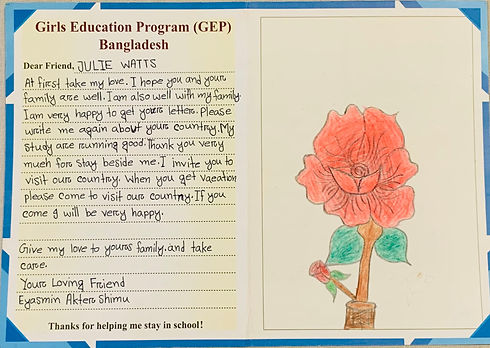 Girls Education Program (GEP)
Bangladesh
Dear Friend, JULIE WATTS
At first take my love. I hope you and your
family are well. I am also well with my family.
I am very happy to get your letter. Please
write me again about your country. My
study are running good. Thank you very
much for stay beside me. I invite you to
visit our country. When you get vacation
please come to visit our country. If you
come I will be very happy.
Give my love to yours family. and take
care.
Your Loving Friend
Eyasmin Akter Shimu
Thanks for helping me stay in school!